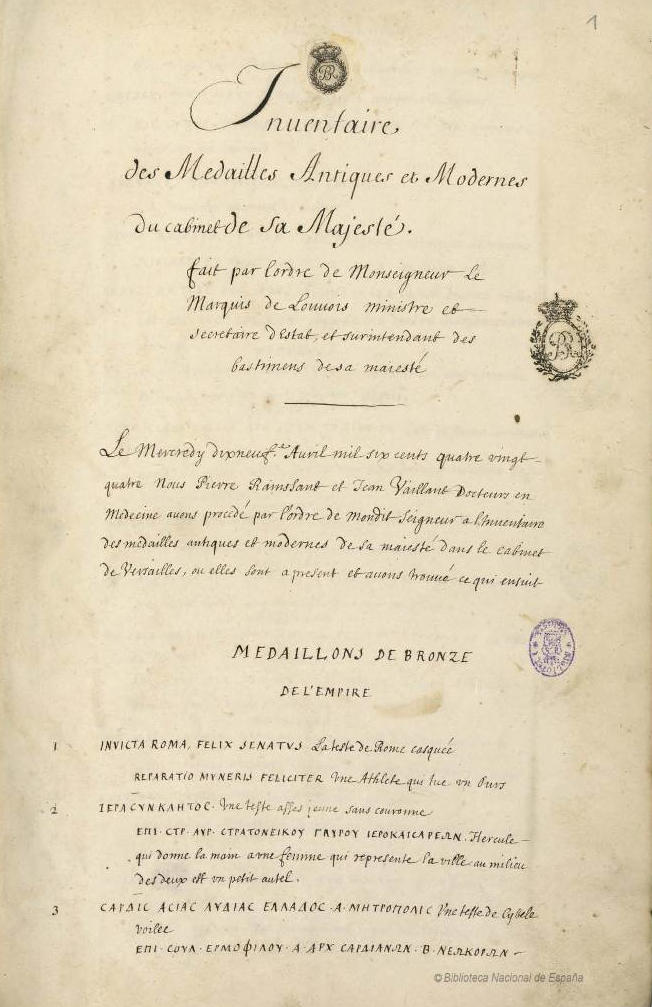 1
Inuentaire,
des Medailles Antiques et Modernes
Du cabinet de sa Majesté.
fait par l'ordre de Monseigneur Le
Marquis de Louuois ministre et
secretaire d'Estat, et surintendant des
bastimens de sa maiesté
Le Mercredy dixneuf.e Auril mil six cents quatre vingt
quatre Nous Pierre Rainssant et Jean Vaillant Docteurs en
Medecine auons procédé par l'ordre de mondit Seigneur a l'Inuentaire
des medailles antiques et modernes de sa maiesté dans le cabinet
de Versailles, ou elles sont a present et auons trouué ce qui ensuit
MEDAILLONS DE BRONZE
DE L'EMPIRE
1 INVICTA ROMA, FELIX SENATVS La teste de Rome casquée
REPARATIO MVNERIS FELICITER Vne Athlete qui tue vn Ours
2 ΙΕΡΑ CΥΝΚΛΗΤΟC. Vne teste asses jeune sans couronne
ΕΠΙ·CΤΡ·ΑΥΡ·CΤΡΑΤΟΝΕΙΚΟΥ ΓΛΥΡΟΥ ΙΕΡΟΚΑΙCΑΡΕΩΝ. Hercule
qui donne la main a vne femme qui represente la ville au milieu
des deux est vn petit autel.
3 CΑΡΔΙC ΑCΙΑC ΛΥΔΙΑC ΕΛΛΑΔΟC·Α·ΜΗΤΡΟΠΟΛΙC Vne teste de Cybele
voilée
ΕΠΙ·CΟΥΛ·ΕΡΜΟΦΙΛΟΥ·Α·ΑΡΧ CΑΡΔΙΑΝΩΝ·Β·ΝΕΩΚΟΡΩΝ
© Biblioteca Nacional de España